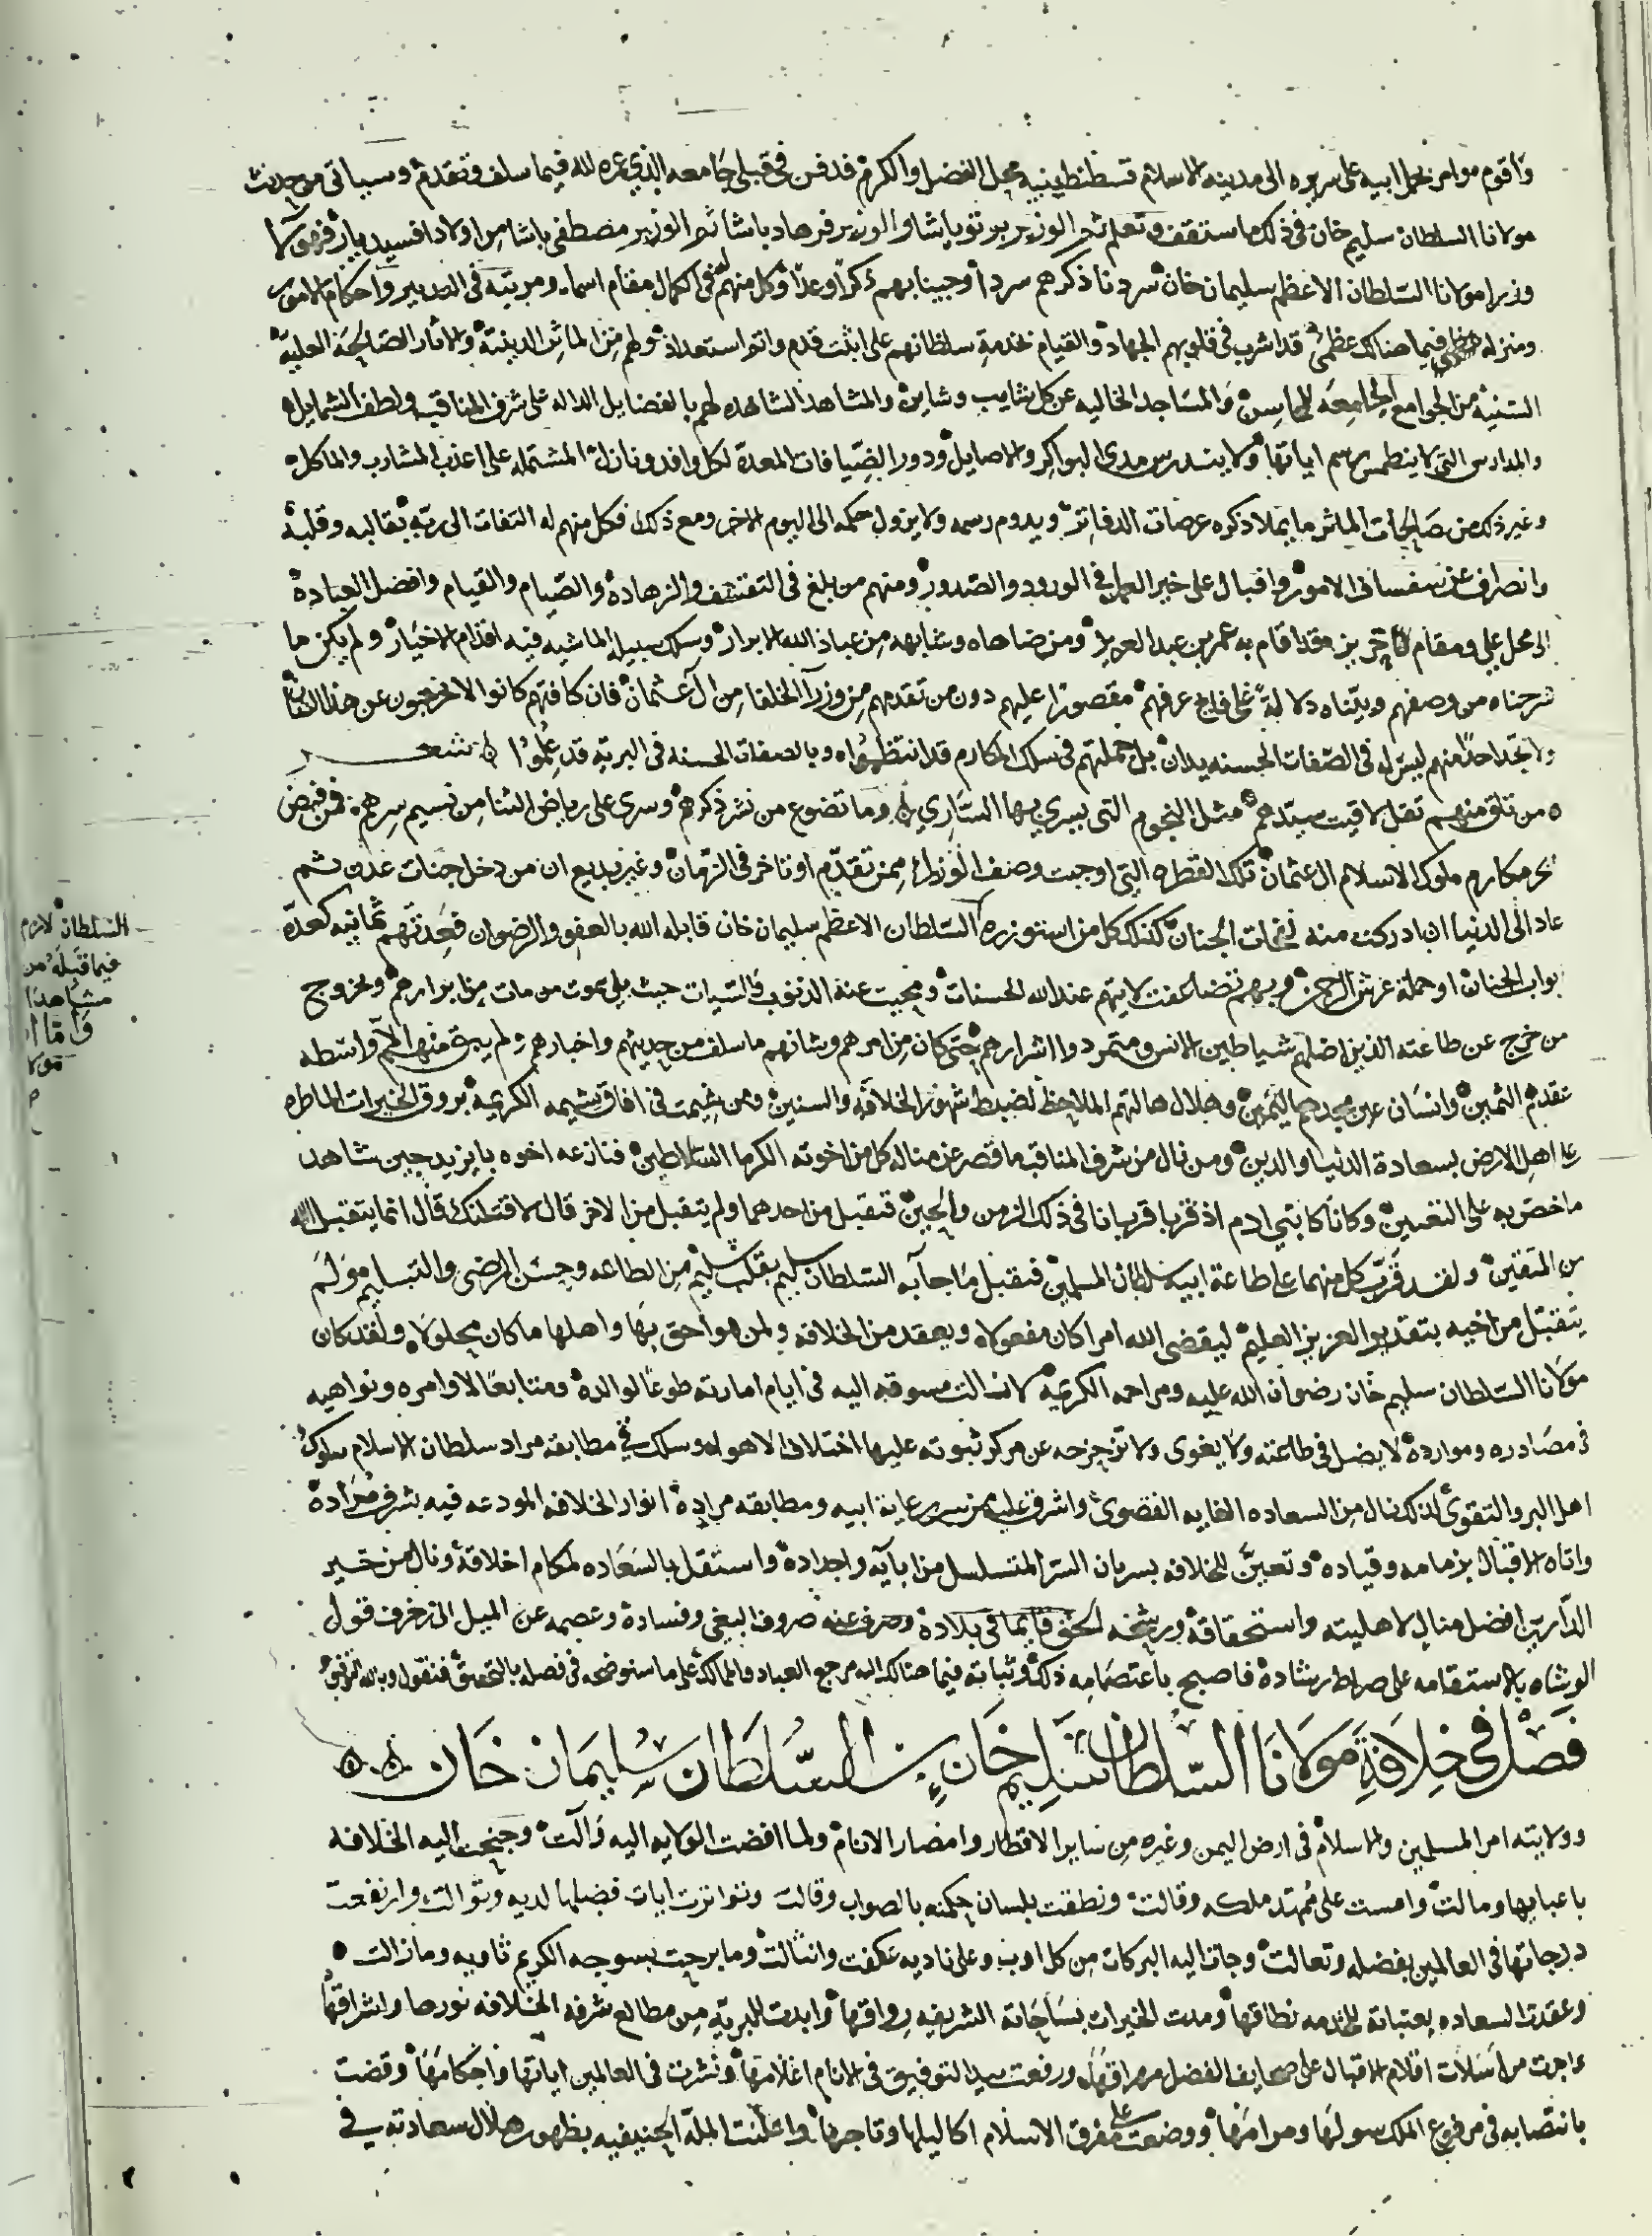 واقوم موامر نحمل ابيه على سريره الى مدينه الاسلام قسطنطينيه محل الفضل والكرم فدفن في قبلي جامعه الذي عمره لله فيما سلف وتقدم وسياتى من حديث
مولانا السلطان سليم خان في ذلك ما ستقف وتعلم ثم الوزير برتو باشا والوزير فرهاد باشا ثم الوزير مصطفى باشا من اولاد اسفنديار فهولآ
وزرا مولانا السلطان الاعظم سليمان خان سردنا ذكرهم سردا وحبينا بهم ذكرا وعدا وكل منهم في الكمال مقام اسماء ومرتبه في التدبير واحكام الامور
ومنزله فيما هنالك عظمى قد اشرب في قلوبهم الجهاد والقيام بخدمة سلطانهم على اثبت قدم واتم استعداد ولهم من الماثر الدينية والاثار الصالحة العلية
السنيه من الجوامع الجامعه للمحاسن والمساجد الخاليه عن كل شايب وشاين والمشاهد الشاهده لهم بالفضايل الداله على شرف المناقب ولطف الشمايل
والمدارس التي لا ينطمس رسم اياتها ولا يندرس مدى البواكر والاصايل ودور الضيافات المعدة لكل وافد ونازل المشتمله على اعذب المشارب والماكل
وغير ذلك من صالحات الماثر ما يملا ذكره عرصات الدفاتر ويدوم رسمه ولا يزول حكمه الى اليوم الاخر ومع ذلك فكل منهم له التفات الى ربه بقالبه وقلبه
وانصراف عن سفساف الامور واقبال على خير العمل في الورود والصدور ومنهم من بلغ في التقشف والزهاده والصيام والقيام وافضل العباده
الى محل علي ومقام قام به عمر بن عبد العزيز ومن ضاهاه وشابهه من عباد الله الابرار وسلك سبيله الماشيه فيه اقدام الاخيار ولم يكن ما
شرحناه من وصفهم وبيناه دلالة على فايح عرفهم مقصورا عليهم دون من تقدمهم من وزرآ الخلفا من آل عثمان فان كافتهم كانوا لا يخرجون عن هذا الشان
ولا تجد احدا منهم ليس له في الصفات الحسنه يدان بل جملتهم في سلك المكارم قد انتظموا وبالصفات الحسنه في البريه قد علموا شعر
من تلق منهم تقل لاقيت سيدهم مثل النجوم التي يسري بها الساري وما تضوع من نشر ذكرهم وسرى على رياض الثنا من نسيم سرهم فمن فيض
بحر مكارم ملوك الاسلام ال عثمان تلك القطره التي اوجبت وصف الوزرا ممن تقدم او تاخر في الزمان وغير بديع ان من دخل جنات عدن ثم
عاد الى الدنيا ان ادركت منه نفحات الجنان كذلك كل من استوزره السلطان الاعظم سليمان خان قابله الله بالعفو والرضوان فعدتهم ثمانيه كعدة
ابواب الجنان او حملة عرش الرحمن وبهم تضاعفت لايتهم عند الله الحسنات ومحيت عنه الذنوب والسيات حيث بلي بموت من مات من ابرارهم وخروج
من خرج عن طاعته الذين اضلهم شياطين الانس ومتمردوا اشرارهم حتى كان من امرهم وشانهم ما سلف من حديثهم واخبارهم ولم يبق منهم الا واسطه
عقدهم الثمين وانسان عين مجدهم اليمين وهلال هالتهم الملاحظ لضبط شهور الخلافه والسنين ومن شيمت في افاق شيمه الكريمة بروق الخيرات الماطره
على اهل الارض بسعادة الدنيا والدين ومن نال من شرف المناقب ما قصر عن مناله كل من اخوته الكرما السلاطين فنازعه اخوه بايزيد حين شاهد
ما خص به على التعيين وكانا كابني ادم اذ قربا قربانا في ذلك الزمن والحين فتقبل من احدهما ولم يتقبل من الاخر قال لاقتلنك قال انما يتقبل الله
من المتقين ولقد قرب كل منهما على طاعة ابيه سلطان المسلمين فتقبل ما جآ به السلطان سليم بقلب سليم من الطاعه وحسن الرضى والتسليم ولم
يتقبل من اخيه بتقدير العزيز العليم ليقضى الله امرا كان مفعولا ويعقد من الخلافه ولمن هو احق بها واهلها ما كان محلولا ولقد كان
مولانا السلطان سليم خان رضوان الله عليه ومراحمه الكريمه لا زالت مسوقه اليه في ايام امارته طوعا لوالده ومتابعا لاوامره ونواهيه
في مصادره وموارده لا يضل في طاعته ولا يغوى ولا تزحزحه عن مركز ثبوته عليها اختلاف الاهوا وسلك في مطابقه مراد سلطان الاسلام سلوك
اهل البر والتقوى لذلك نال من السعاده الغايه القصوى واشرق عليه من سر رعاية ابيه ومطابقه مراده انوار الخلافه المودعه فيه بشرف مراده
واتاه الاقبال بزمامه وقياده وتعين للخلافه بسريان السر المتسلسل من ابآيه واجداده واستقل بالسعاده لمكام اخلاقه ونال من خير
الدارين افضل منال لاهليته واستحقاقه ورشحه الحق قايما في بلاده وصرف عنه صروف البغي وفساده وعصمه عن الميل الى زخرف قول
الوشاه بالاستقامه على صراط رشاده فاصبح باعتصامه ذلك وثباته فيما هنالك اليه مرجع العباد والممالك على ما سنوضحه في فصله بالتحقيق فنقول وبالله التوفيق
فصل في خلافة مولانا السلطان سليم خان بن السلطان سليمان خان
وولايته امر المسلمين والاسلام في ارض اليمن وغيره من ساير الاقطار وامصار الانام ولما افضت الولايه اليه وآلت وجنحت اليه الخلافه
باعبايها ومالت وامست على ممهد ملكه وقالت ونطقت بلسان حكمته بالصواب وقالت وتواترت ايات فضلها لديه وتوالت وارتفعت
درجاتها في العالمين بفضله وتعالت وجات اليه البركات من كل اوب وعلى ناديه عكفت وانثالت وما برحت بسوحه الكريم ثاويه وما زالت
وعقدت السعاده بعتباته للخدمه نطاقها ومدت الخيرات بساحاته الشريفه رواقها وابدت للبريه من مطالع شرفه الخلافه نورها واشراقها
واجرت من اسلات اقلام الاقبال على صحايف الفضل مهراقها ورفعت يد التوفيق في الانام اعلامها ونشرت في العالمين اياتها واحكامها وقضت
بانتصابه في مرفوع الملك سولها ومرامها ووضعت على مفرق الاسلام اكاليلها وتاجها واعلنت الملة الحنيفيه بظهور هلال سعادته في
السلطان لازم
فيما قبله من
مشاهد
واما